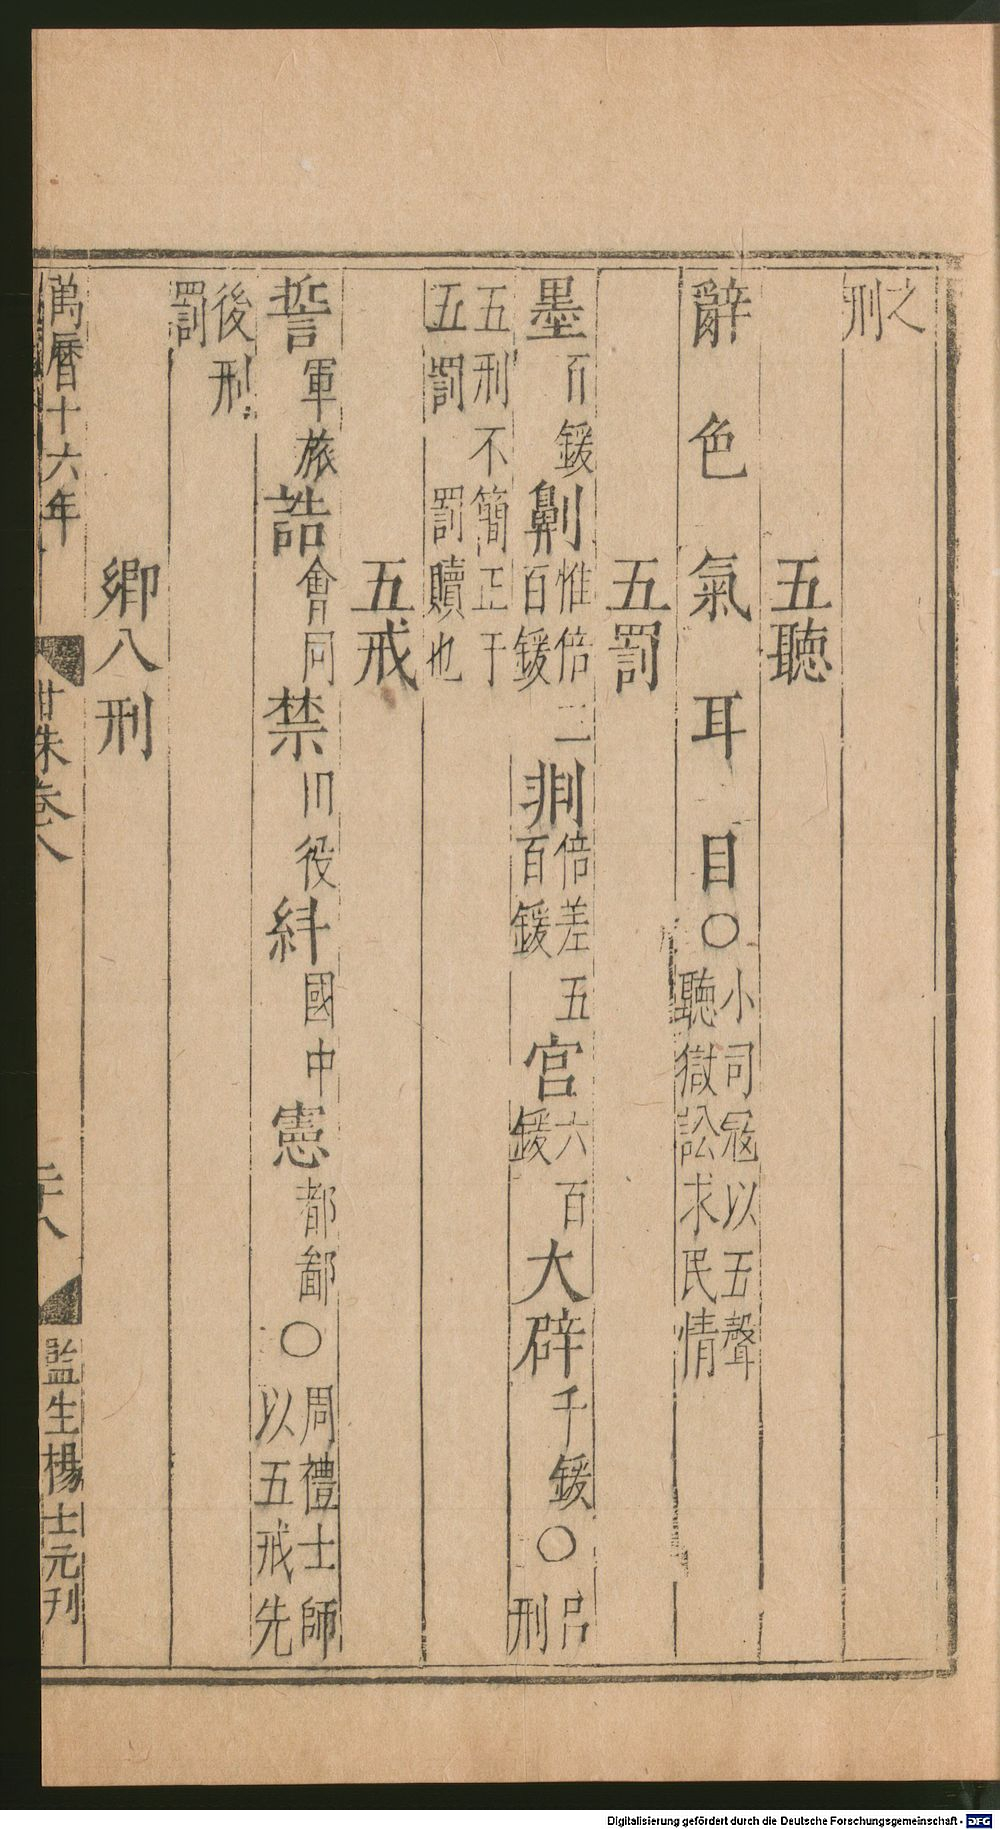 之
刑
五聽
辭色氣耳目○小司寇以五聲聽獄訟求民情
五罰
墨百鍰劓惟倍二百鍰剕倍差五百鍰宮六百鍰大辟千鍰○呂刑
五刑不簡正于五罰罰贖也
五戒
誓軍旅誥會同禁田役糾國中憲都鄙○周禮士師以五戒先
後刑罰
鄉八刑
萬曆十六年
紺珠卷八
二十八
監生楊士元刋
Digitalisierung gefördert durch die Deutsche Forschungsgemeinschaft - DFG